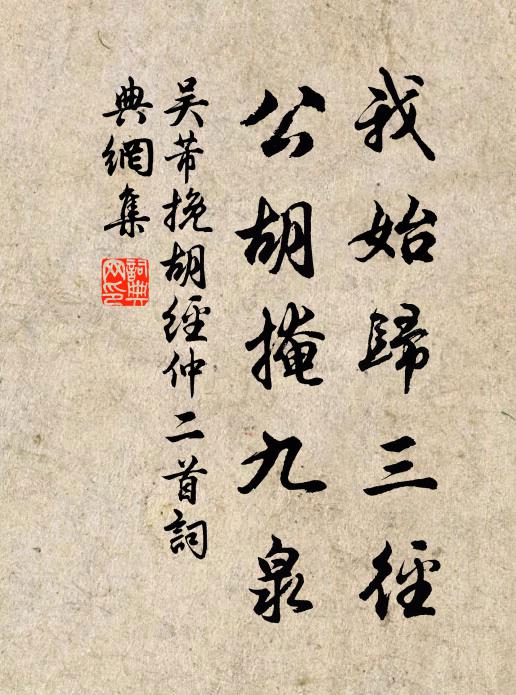 我始歸三徑
公胡掩九泉
吴芾挽胡經仲二首詞
典網集
詞典網印